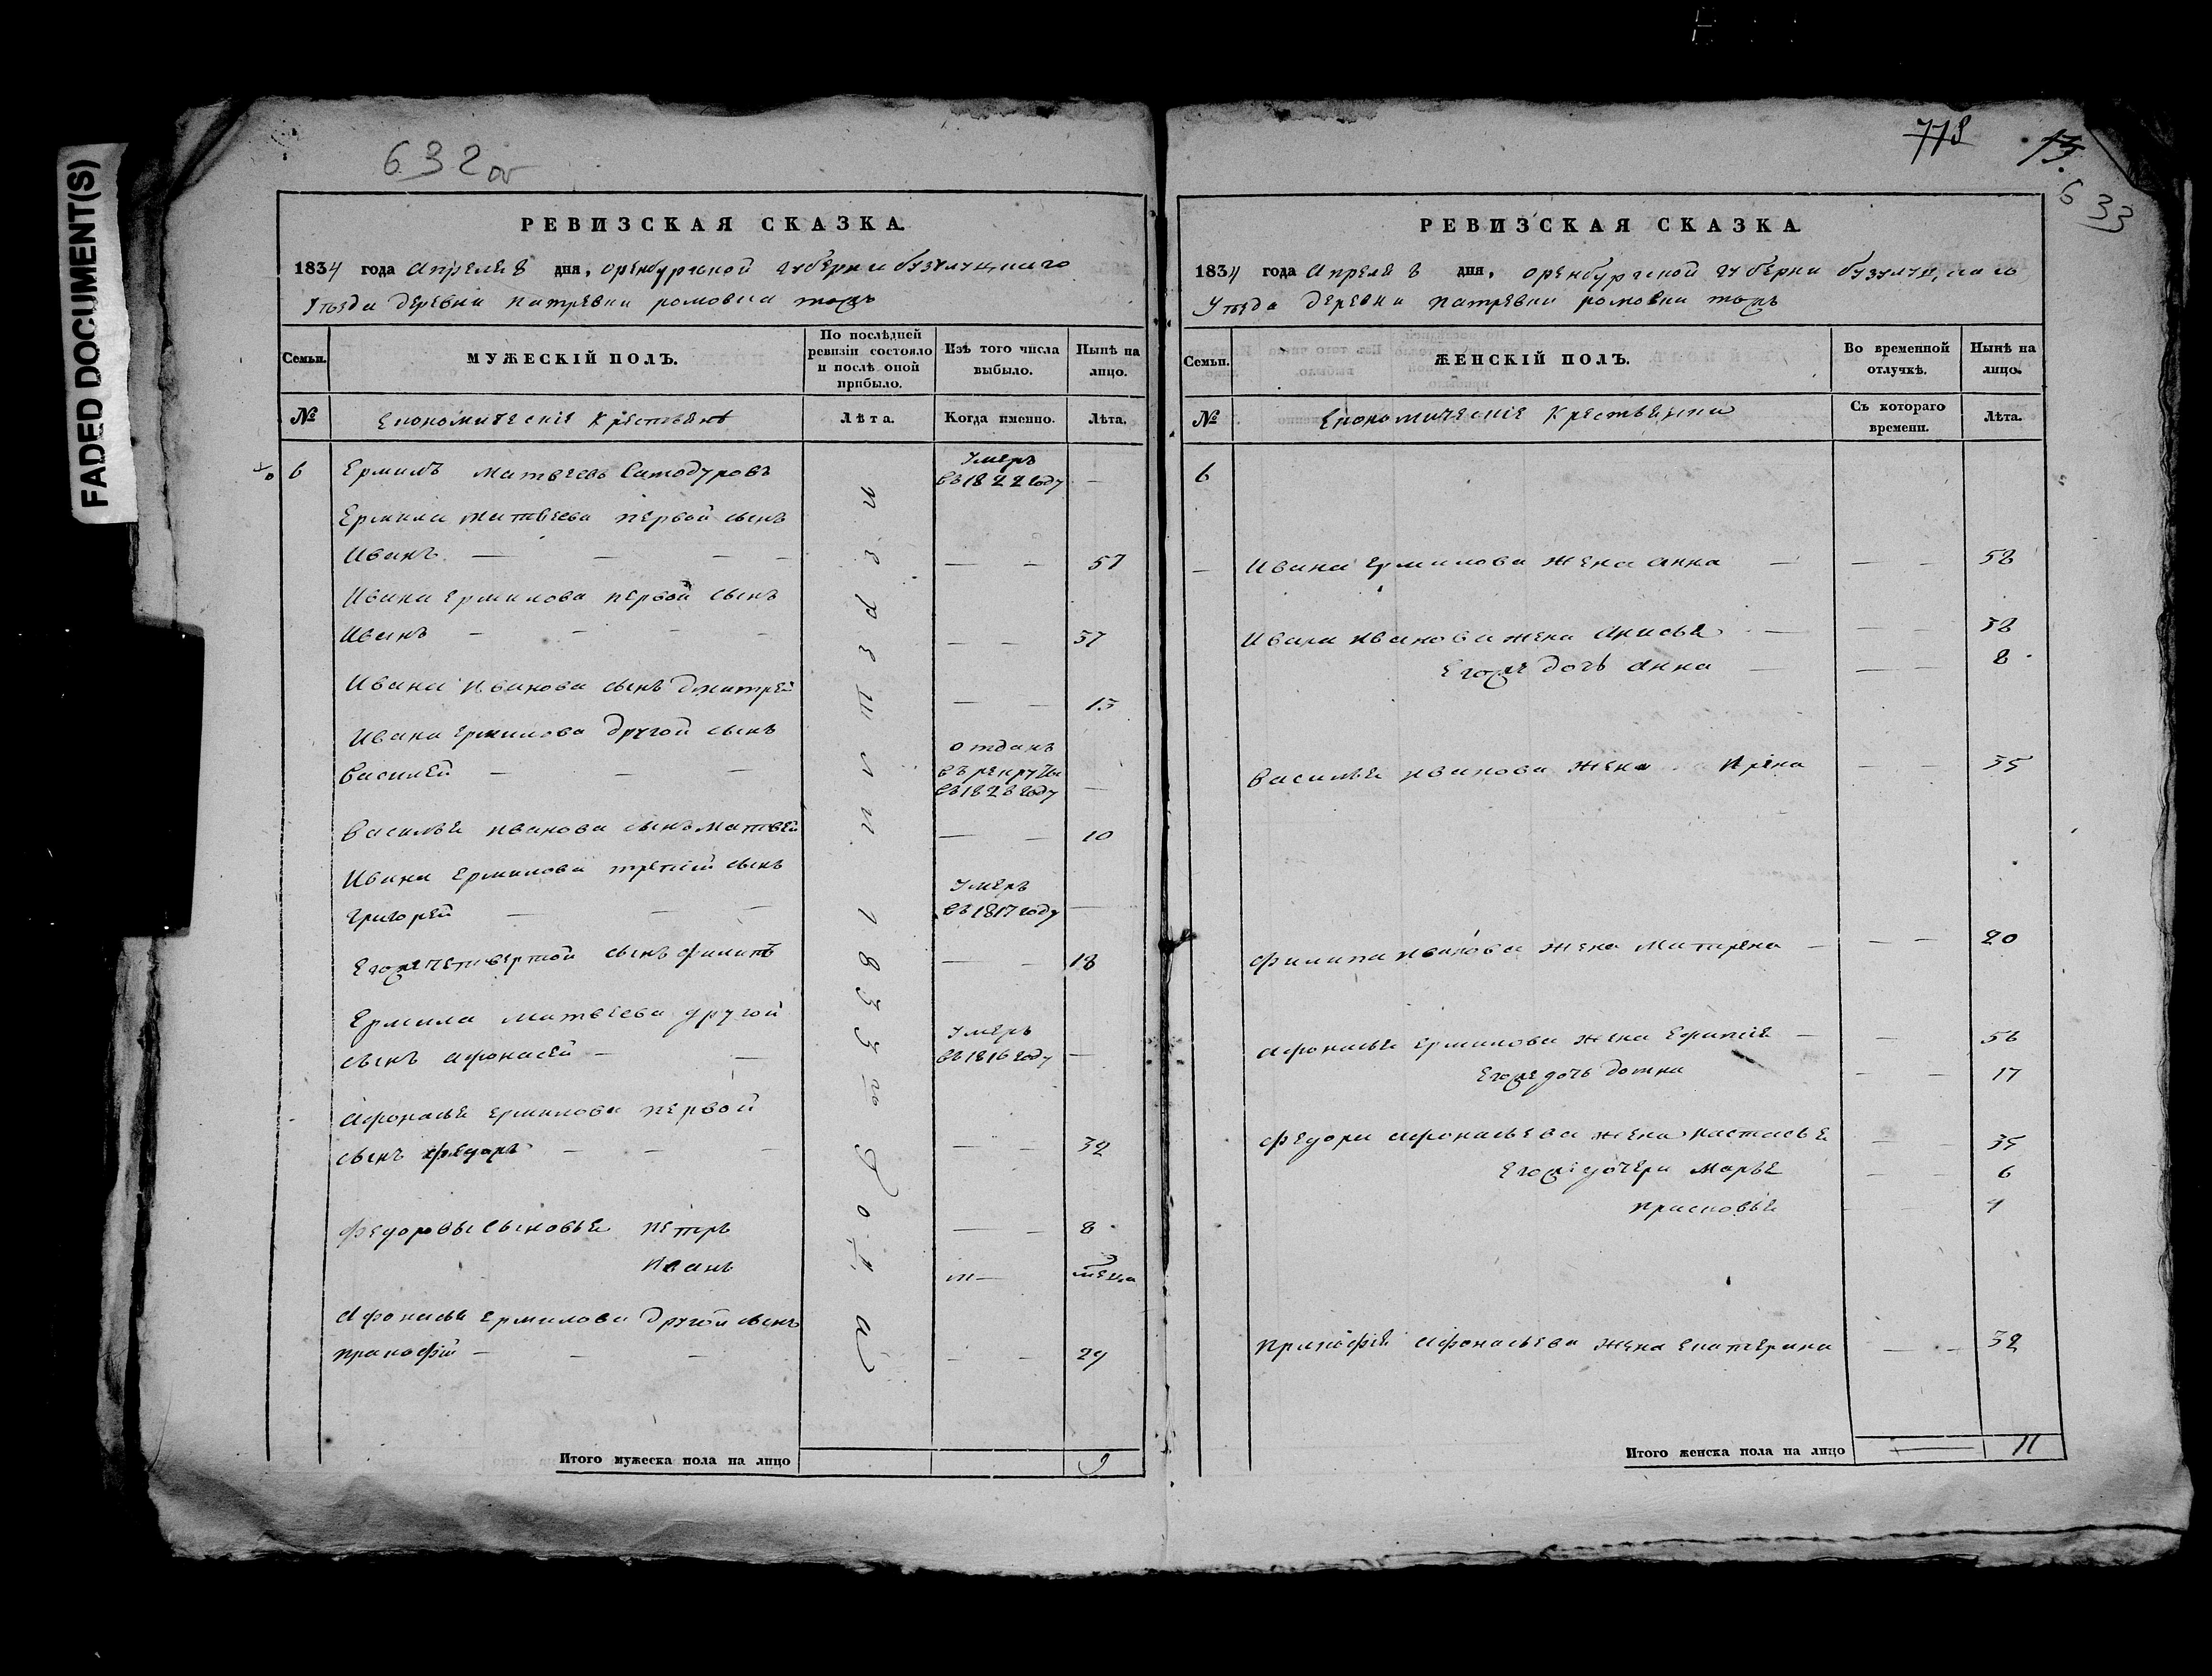 FADED DOCUMENT(S)
632об
РЕВИЗСКАЯ СКАЗКА.
1834 года Апреля 8 дня, оренбургской губерни бузулуцкаго
Уѣзда деревни патревки ромовка тожъ
Семьи.
МУЖЕСКІЙ ПОЛЪ.
По послѣдней ревизіи состояло и послѣ оной прибыло.
Изъ того числа выбыло.
Нынѣ на лицо.
№
Економическіе Крестьянѣ
Лѣта.
Когда именно.
Лѣта.
6 Ермилъ матвеевъ Самодуровъ Умеръ въ 1822 году —
Ермила матвеева первой сынъ
Иванъ — — — — — — 57
Ивана ермилова первой сынъ
Иванъ — — — — — — 37
Ивана иванова сынъ дмитрей — — 15
Ивана ермилова другой сынъ
Василей — — — отданъ въ рекруты въ 1828 году —
Василья иванова сынъ матвей — — 10
Ивана ермилова третий сынъ
григорей — — — Умеръ въ 1817 году —
Егоже четвертой сынъ филипъ — — 18
Ермила матвеева другой
сынъ афонасей — — Умеръ въ 1816 году —
Афонасья ермилова первой
сынъ федоръ — — — — — 32
федоровы сыновья петръ — — 8
иванъ — 3 меца
Афонасья ермилова другой сынъ
пракофий — — — — — 29
перешли 1833го года
Итого мужеска пола на лицо 9
778
633
РЕВИЗСКАЯ СКАЗКА.
1834 года Апреля 8 дня, оренбургской губерни бузулуцкаго
Уѣзда деревни патревки ромовки тожъ
Семьи.
ЖЕНСКІЙ ПОЛЪ.
Во временной отлучкѣ.
Нынѣ на лицо.
№
Економическіе Крестьянки
Съ котораго времени.
Лѣта.
6
— Ивана ермилова жена анна — — — 58
Ивана иванова жена анисья — — — 38
Егоже дочь анна — — — 8
Василья иванова жена ирена — — 35
филипа иванова жена матрена — — — 20
афонасья ермилова жена — — 56
Егоже дочь домна — — 17
федора афонасьева жена настасья — — 35
Егоже дочери марья — — 6
прасковья — — 4
пракофия афонасьева жена екатерина — — 32
Итого женска пола на лицо — 11